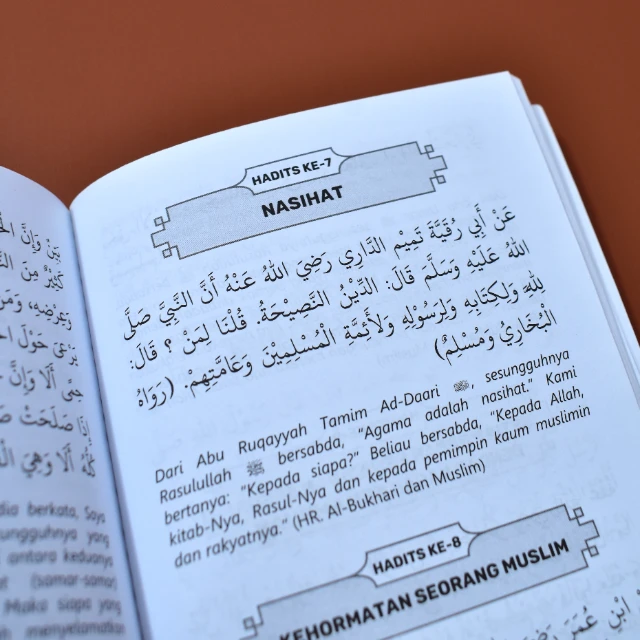 بِيْنَ وَإِنَّ الْحَ
كَثِيْرٌ مِنَ النَّ
وَعِرْضِهِ، وَمَنْ
يَرْعَى حَوْلَ الْ
حِمًى أَلَا وَإِنَّ
إِذَا صَلَحَتْ صَ
كُلُّهُ أَلَا وَهِيَ الْ
dia berkata: Saya
sungguhnya yang
antara keduanya
(samar-samar)
Maka siapa yang
menyelamatkan
HADITS KE-7
NASIHAT
عَنْ أَبِي رُقَيَّةَ تَمِيْمٍ الدَّارِي رَضِيَ اللهُ عَنْهُ أَنَّ النَّبِيَّ صَلَّى
اللهُ عَلَيْهِ وَسَلَّمَ قَالَ: الدِّيْنُ النَّصِيْحَةُ. قُلْنَا لِمَنْ ؟ قَالَ:
لِلهِ وَلِكِتَابِهِ وَلِرَسُوْلِهِ وَلِأَئِمَّةِ الْمُسْلِمِيْنَ وَعَامَّتِهِمْ. (رَوَاهُ
الْبُخَارِيُّ وَمُسْلِمٌ)
Dari Abu Ruqayyah Tamim Ad-Daari ﷺ, sesungguhnya
Rasulullah ﷺ bersabda, "Agama adalah nasihat." Kami
bertanya: "Kepada siapa?" Beliau bersabda, "Kepada Allah,
kitab-Nya, Rasul-Nya dan kepada pemimpin kaum muslimin
dan rakyatnya." (HR. Al-Bukhari dan Muslim)
HADITS KE-8
KEHORMATAN SEORANG MUSLIM